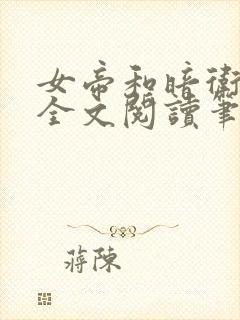 女帝和暗衛
全文閱讀筆
蔣陳